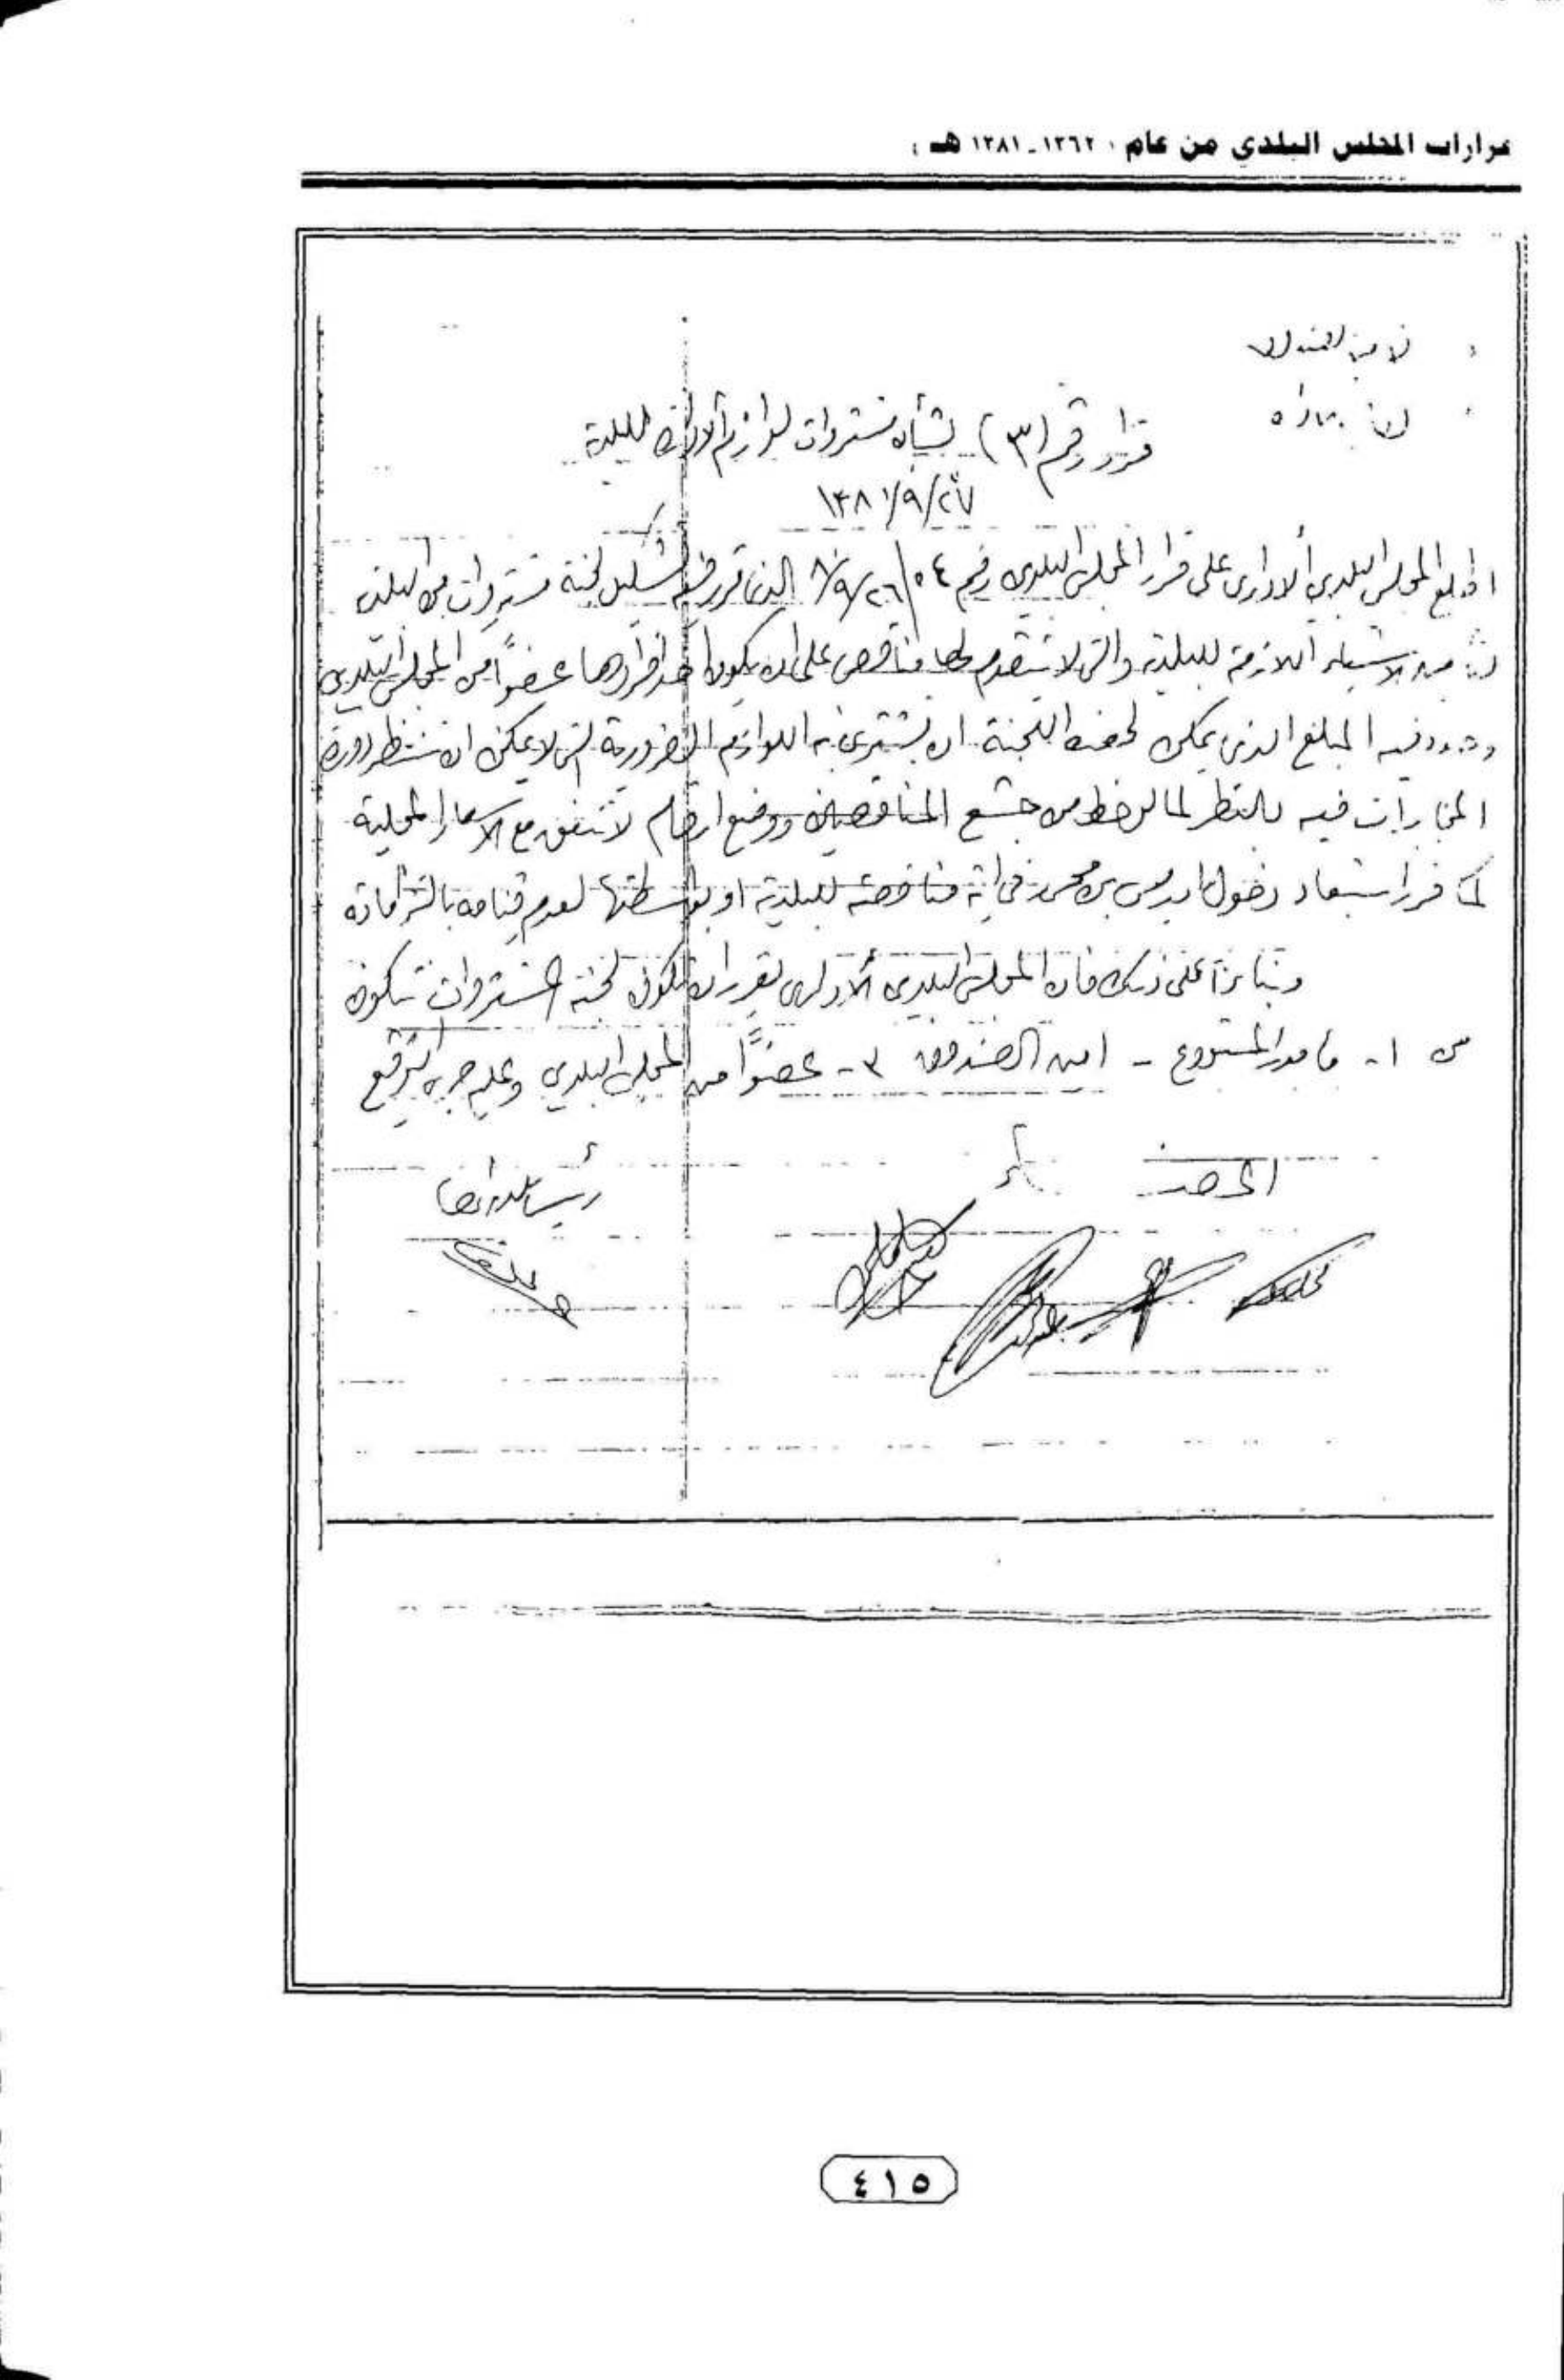 قرارات المجلس البلدي من عام ١٣٦٢ - ١٣٨١ هـ :
قرار رقم (٣) بشأن مشتروات لوازم الادارة للبلدية
١٣٨١/٩/٢٧
اطلع المجلس البلدي الاداري على قرار المجلس البلدي رقم ٥٤ ٨١/٩/٢٦ الذي قرر فيه تشكيل لجنة مشتروات من البلدية
الاشياء اللازمة للبلدية والتي لا يتقدم لها مناقص على ان يكون احد افرادها عضواً من المجلس البلدي
فيه المبلغ الذي يمكن لهذه اللجنة ان تشتري به اللوازم الضرورية التي لا يمكن ان تنتظر دورة
المخابرات فيه بالنظر لما لوحظ من جشع المناقصين ووضع ارقام لا تتفق مع الاسعار المحلية
كما قرر استبعاد دخول بن محمد في اية مناقصة للبلدية او بواسطتها لعدم قيامه بالشرافة
وبناءً على ذلك فان المجلس البلدي الاداري يقرر ان تكون لجنة المشتروات تتكون
من ١- مأمور المستودع - امين الصندوق ٣- عضواً من المجلس البلدي وعليه جرى التوقيع
رئيس بلدية
٤١٥